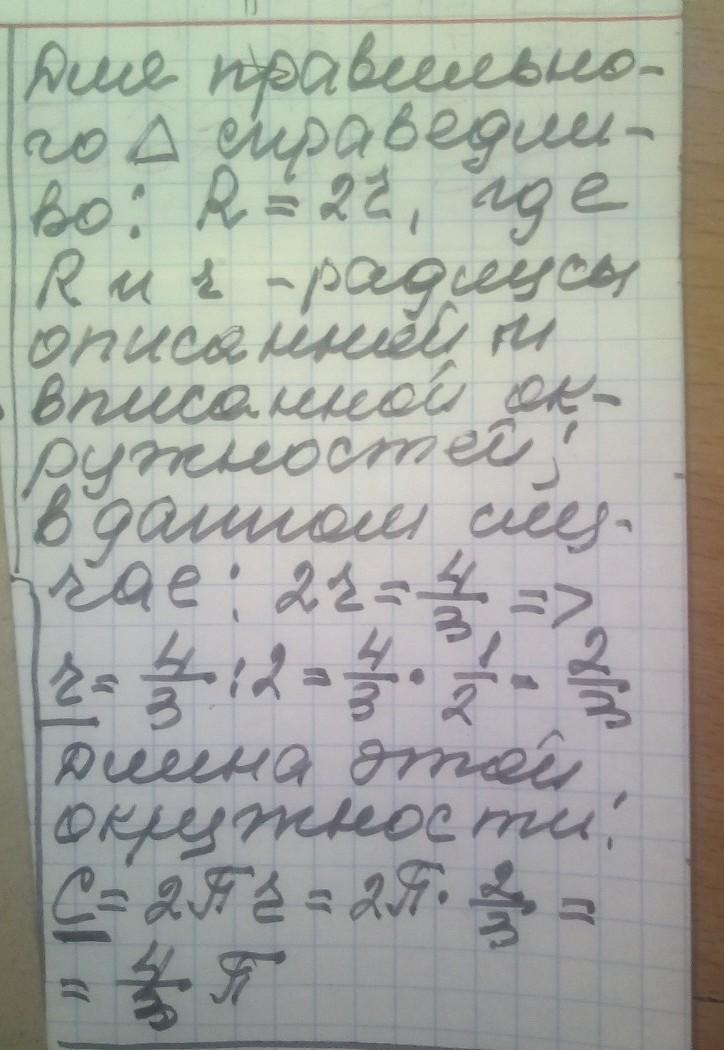 Для правильно-
го Δ справедли-
во: R = 2r, где
R и r - радиусы
описанной и
вписанной ок-
ружностей;
в данном слу-
чае: 2r = 4/3 =>
r = 4/3 : 2 = 4/3 · 1/2 = 2/3
Длина этой
окружности:
C = 2πr = 2π · 2/3 =
= 4/3 π